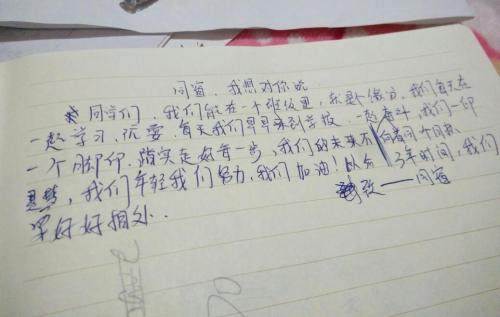 同道，我想对你说
同学们，我们能在一个班级里，就是个缘分，我们每天在
一起学习，玩耍，每天我们早早来到学校，一起奋斗，我们一印
一个脚印，踏实走好每一步，我们的未来不
，我们年轻我们努力，我们加油！以后3年时间，我们
要好好相处．
致——同道